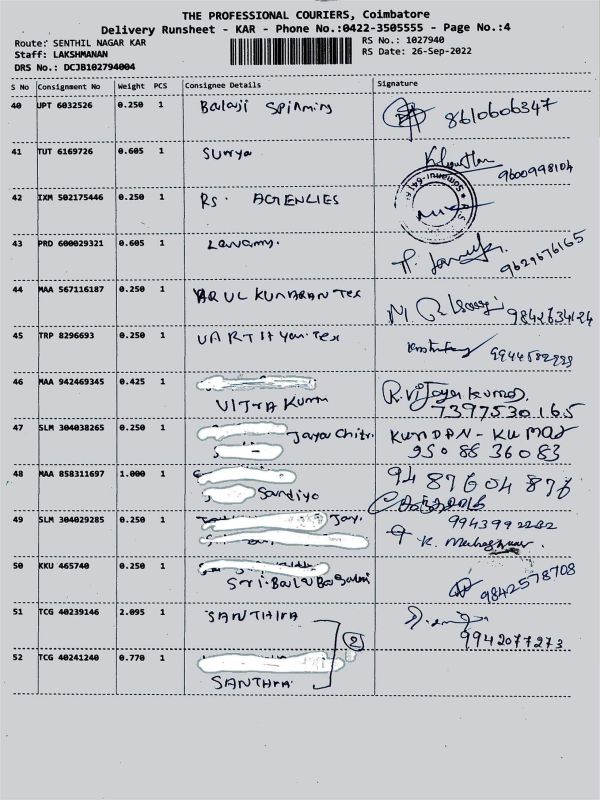 THE PROFESSIONAL COURIERS, Coimbatore
Delivery Runsheet - KAR - Phone No.:0422-3505555 - Page No.:4
Route: SENTHIL NAGAR KAR
RS No.: 1027940
Staff: LAKSHMANAN
RS Date: 26-Sep-2022
DRS No.: DCJB102794004
S No Consignment No Weight PCS Consignee Details Signature
40 UPT 6032526 0.250 1 Balaji Spinning 8610606347
41 TUT 6169726 0.605 1 Surya 9600998104
42 IXM 502175446 0.250 1 RS. AGENCIES
43 PRD 600029321 0.605 1 9629676165
44 MAA 567116187 0.250 1 ARUL KUMARAN Tex 9842634124
45 TRP 8296693 0.250 1
46 MAA 942469345 0.425 1 R.Vijaya kumar
7397530165
47 SLM 304038265 0.250 1 Jaya Chitr. KUNDAN-KUMAR
95088 36083
48 MAA 858311697 1.000 1 Sandiyo 94 87604 876
49 SLM 304029285 0.250 1 Jay. 9943992202
50 KKU 465740 0.250 1 9842578708
51 TCG 40239146 2.095 1 SANTHIYA
9942077273
2
52 TCG 40241240 0.770 1
SANTHIYA